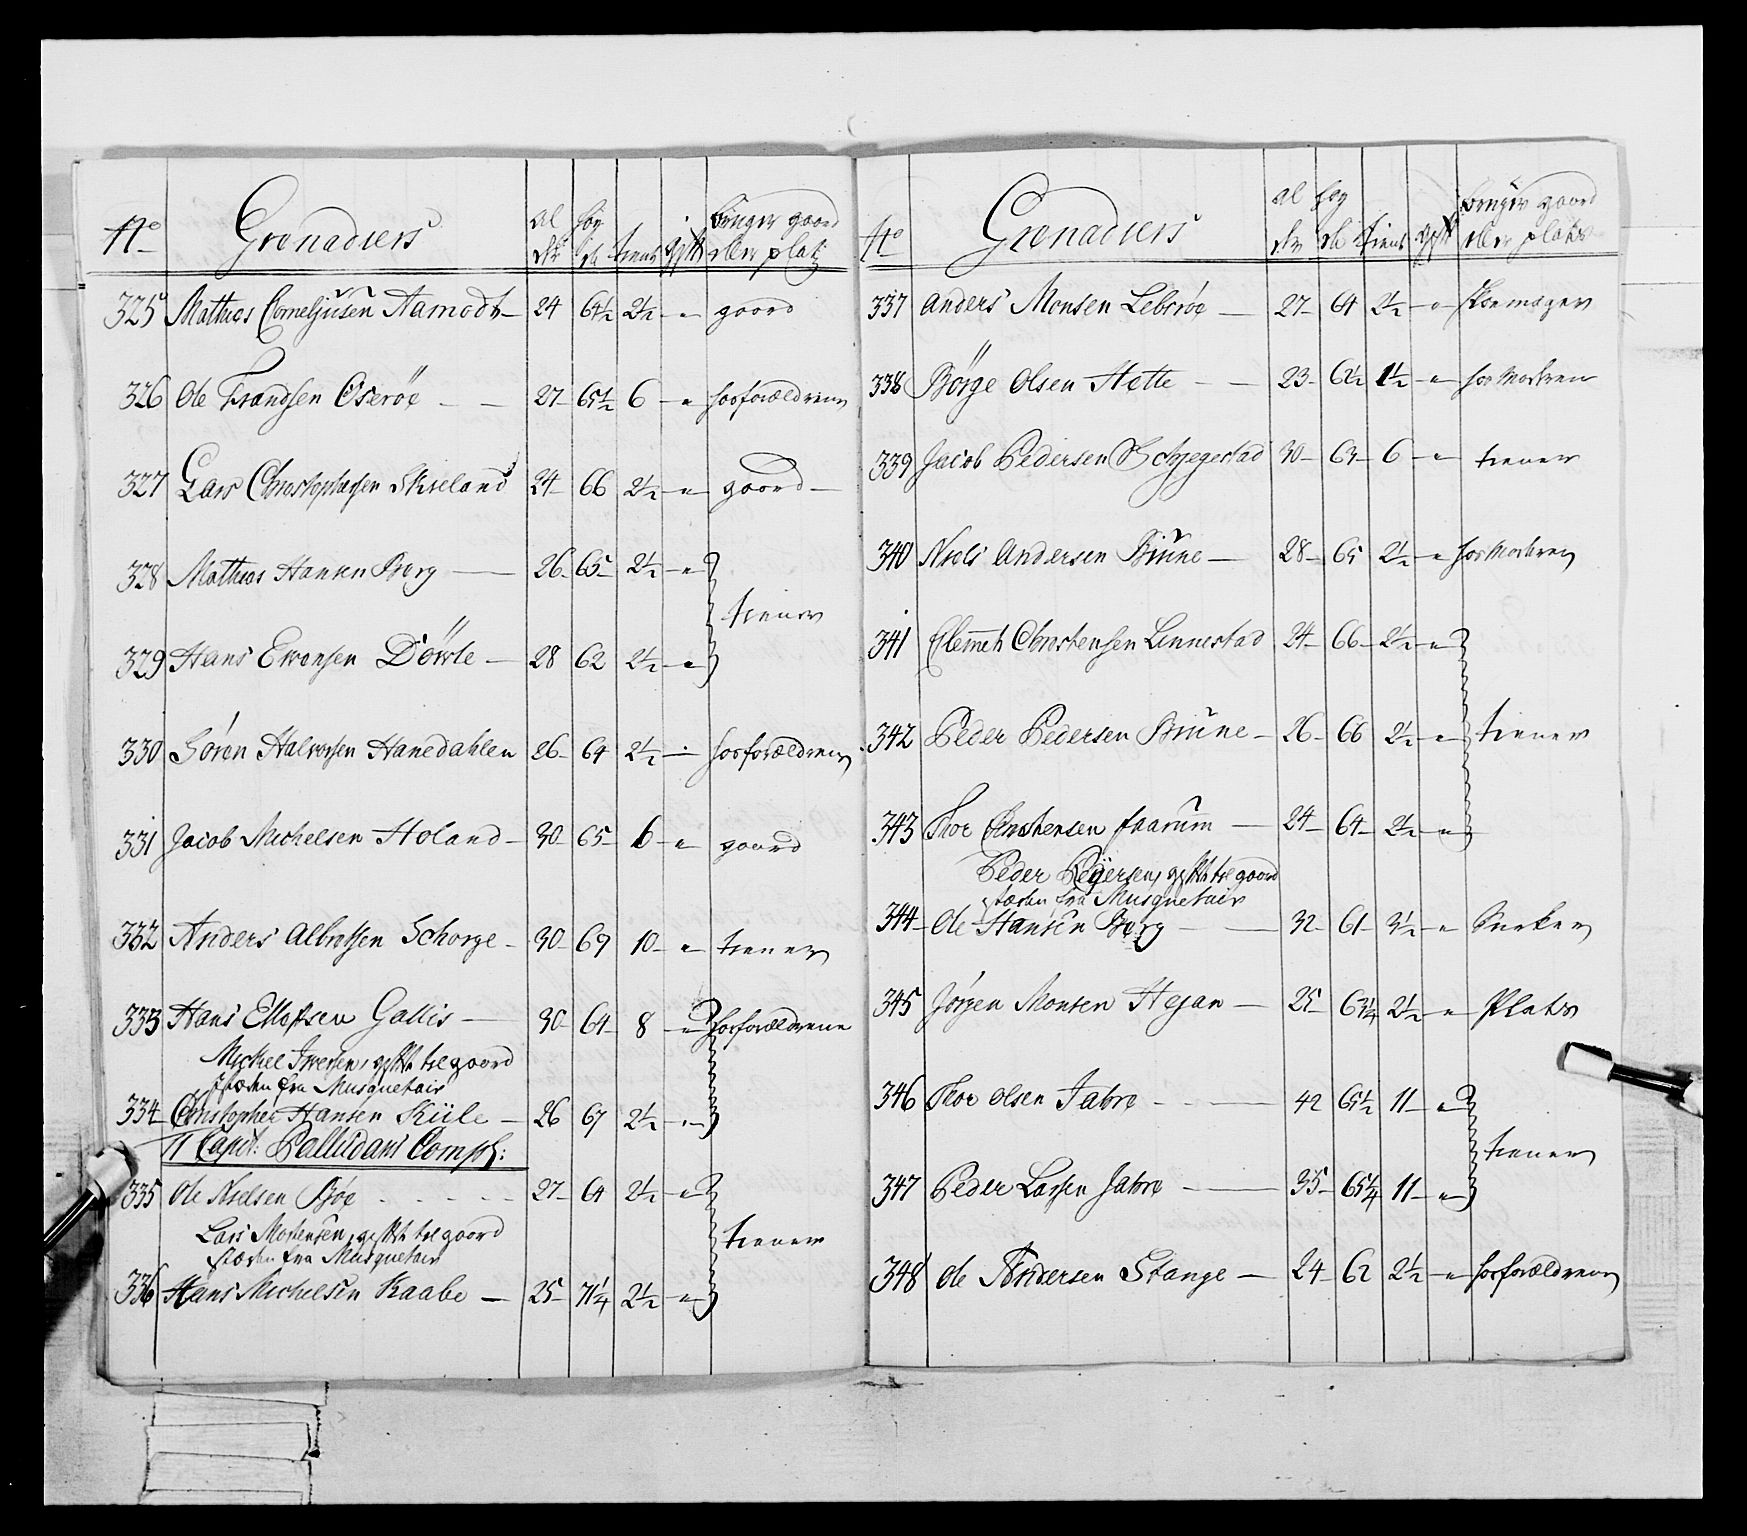 No Grenadiers al der høy de tienst gift bruger gaard eller plats
325 Mathias Corneljusen Aamodt — 24 64½ 2½ — " — gaard
326 Ole Frandsen Oserøe — — 27 65½ 6 — " hos forældrene
327 Lars Christophersen Skieland 24 66 2½ — " — gaard —
328 Mathias Hansen Berg — 26 65 2½ — " —
tiener
329 Hans Evensen Dövle — 28 62 2½ — "
330 Søren Halvorsen Hanedahlen 26 64 2½ — hos forældrene
331 Jacob Michelsen Holand — 30 65 6 — " — gaard
332 Anders Albretsen Schorge — 30 69 10 — " — tiener
333 Hans Ellefsen Gallis — 30 64 8 — " — hos forældrene
Michel Iversen, gift til gaard
i stæden fra Musquetair
334 Christopher Hansen Kiile — 26 67 2½ — " —
11 Capit: Palludans Comp:
335 Ole Nielsen Bøe - - - - - 27 64 2½ — " —
Lars Mortensen, gift til gaard
tiener
stæden fra Musquetair
336 Hans Michelsen Raabe — 25 71¼ 2½ — " —
No Grenadiers al der høy de tienst gift bruger gaard eller plats
337 Anders Monsen Lebrøe — 27 64 2½ — " — skoemager
338 Börge Olsen Hette — — 23 62½ 1½ — " — hos Modren
339 Jacob Pedersen Schjegestad 30 63 6 — " — tiener
340 Niels Andersen Brune — 28 65 2½ — " hos Modren
341 Clemmet Christensen Linnestad 24 66 2½ — " —
342 Peder Pedersen Brune — 26 66 2½ — " — tiener
343 Thor Christensen Aarum — 24 64 2½ — " —
Peder Pedersen, gift til gaard
stæden fra Musquetair
344 Ole Hansen Berg — — 32 61 3½ — " Sneker
345 Jørgen Monsen Hejan — 25 63¼ 2½ — " — Plats
346 Thor Olsen Jabre - - — 42 65½ 11 — "
tiener
347 Peder Larsen Jabre — — 35 65¼ 11 — "
348 Ole Andersen Stange — 24 62 2½ — " — hos forældrene